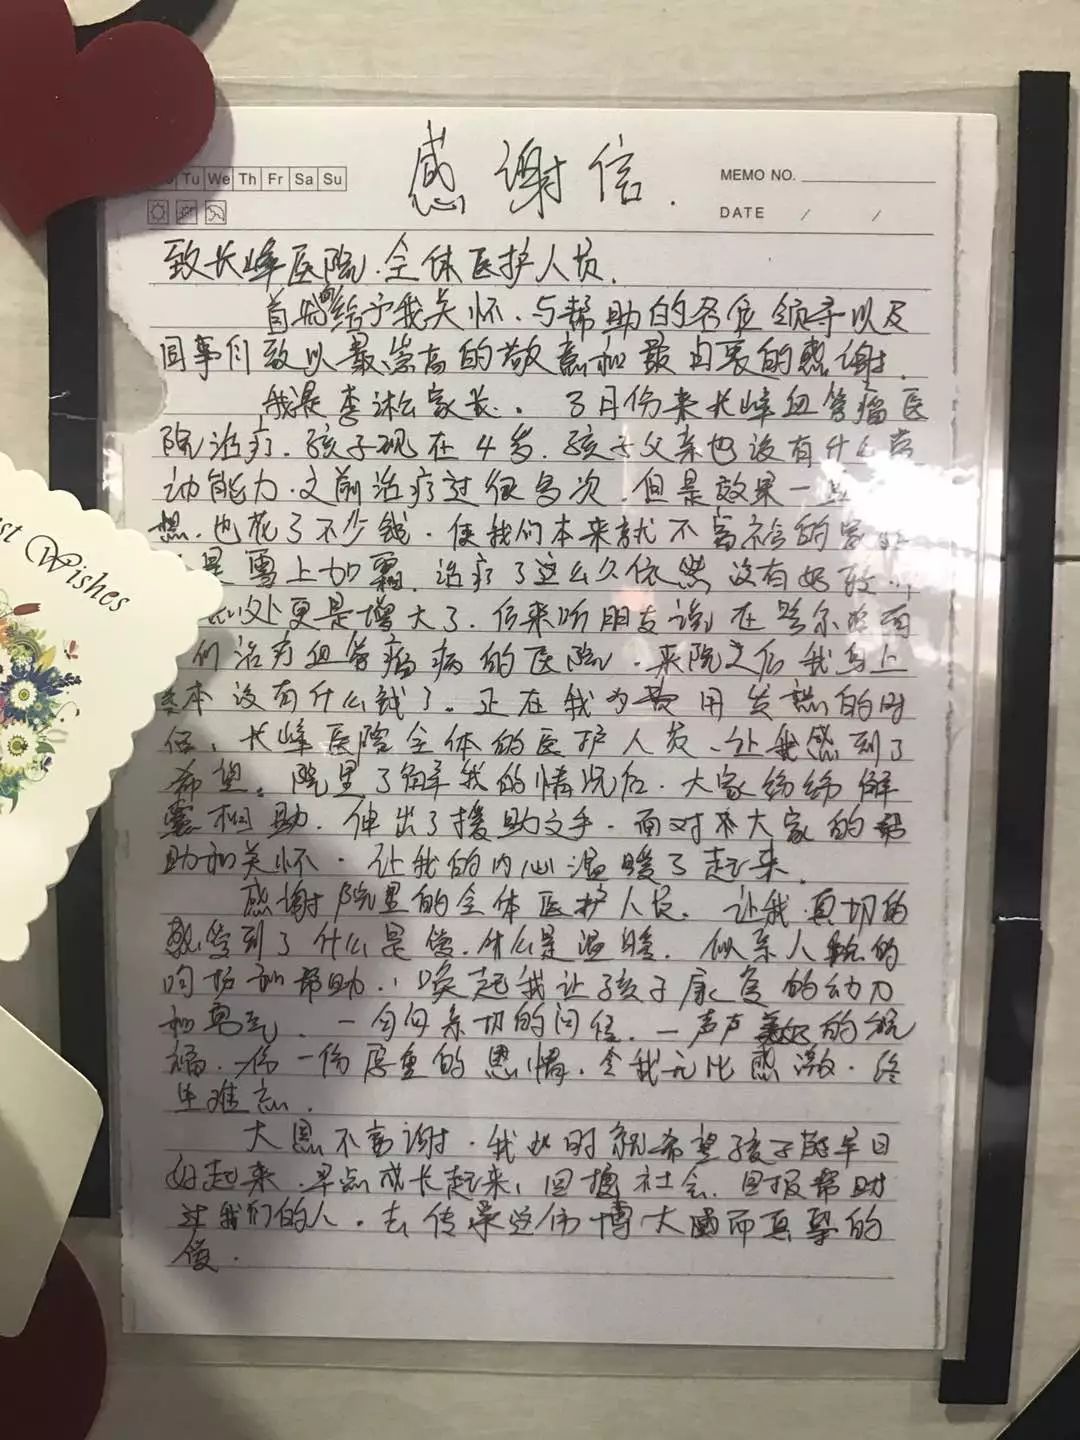 感谢信.
Tu We Th Fr Sa Su
MEMO NO.
DATE / /
致长峰医院.全体医护人员.
首先向给予我关怀.与帮助的各位领导以及
同事们致以最崇高的敬意和最由衷的感谢.
我是李淞家长. 3月份来长峰血管瘤医
院治疗.孩子现在4岁.孩子父亲也没有什么劳
动能力.之前治疗过很多次.但是效果一直
想.也花了不少钱.使我们本来就不富裕的家
是雪上加霜.治疗了这么久依然没有好
处更是增大了.后来听朋友说在哈尔滨有
们治疗血管瘤病的医院.来院之后我身上
基本没有什么钱了。正在我为费用发愁的时
候,长峰医院全体的医护人员、让我感到了
希望。院里了解我的情况后.大家纷纷解
囊相助.伸出了援助之手.面对大家的帮
助和关怀.让我的内心温暖了起来.
感谢院里的全体医护人员.让我真切的
感受到了什么是爱.什么是温暖.似亲人般的
问好和帮助.唤起我让孩子康复的动力
和勇气.一句句亲切的问候.一声声美好的祝
福.一份一份厚重的恩情.令我无比感激.终
生难忘.
大恩不言谢.我此时就希望孩子能早日
好起来.早点成长起来,回报社会.回报帮助
过我们的人.去传承这份博大而真挚的
爱.
st Wishes